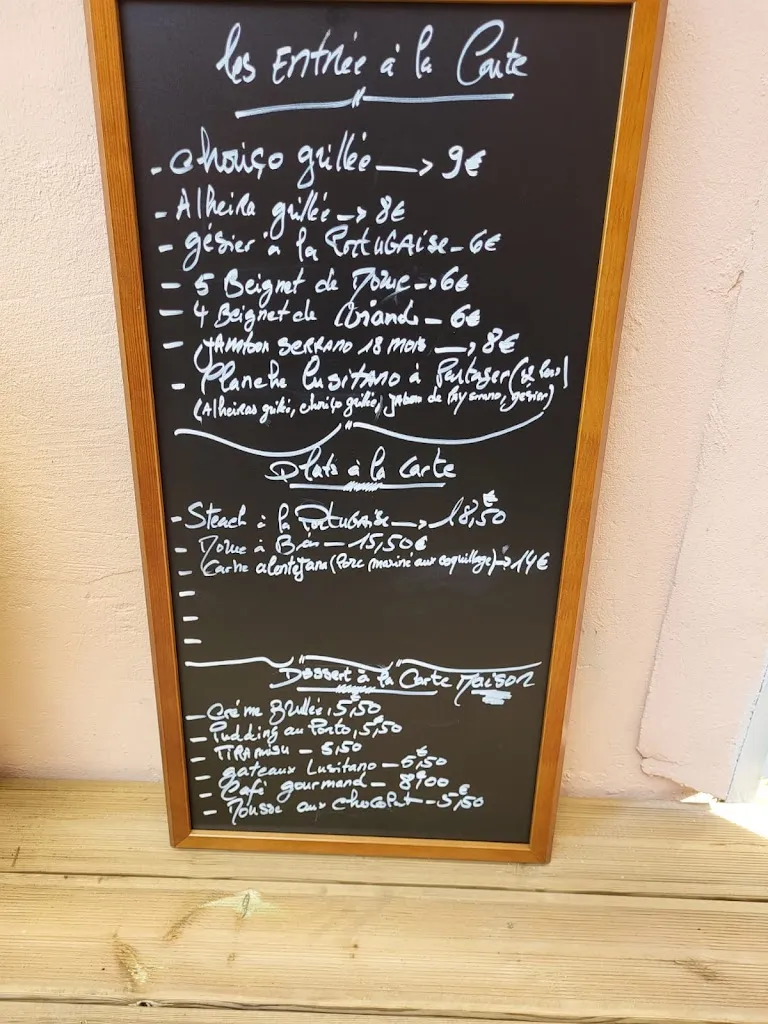 les Entrée à la Carte
- Choriço grillée → 9€
- Alheira grillée → 8€
- gésier à la PORTUGAise - 6€
- 5 Beignet de Morue → 6€
- 4 Beignet de Viande - 6€
- JAMBON SERRANO 18 MOIS → 8€
- Planche Lusitano à Partager
(Alheiras grillé, choriço grillé, gésier)
Plats à la Carte
- Steack à la PORTUGAise → 18,50€
- Morue à Bras - 15,50€
- Carne alentejana (Porc mariné aux coquillage) → 14€
-
-
-
Dessert à la Carte MAISON
- Créme Brullée, 5,50
- Pudding au Porto, 5,50
- TIRAmisu - 5,50
- gateaux Lusitano - 5,50€
- Café gourmand - 8€00
- Mousse aux chocolat - 5,50€